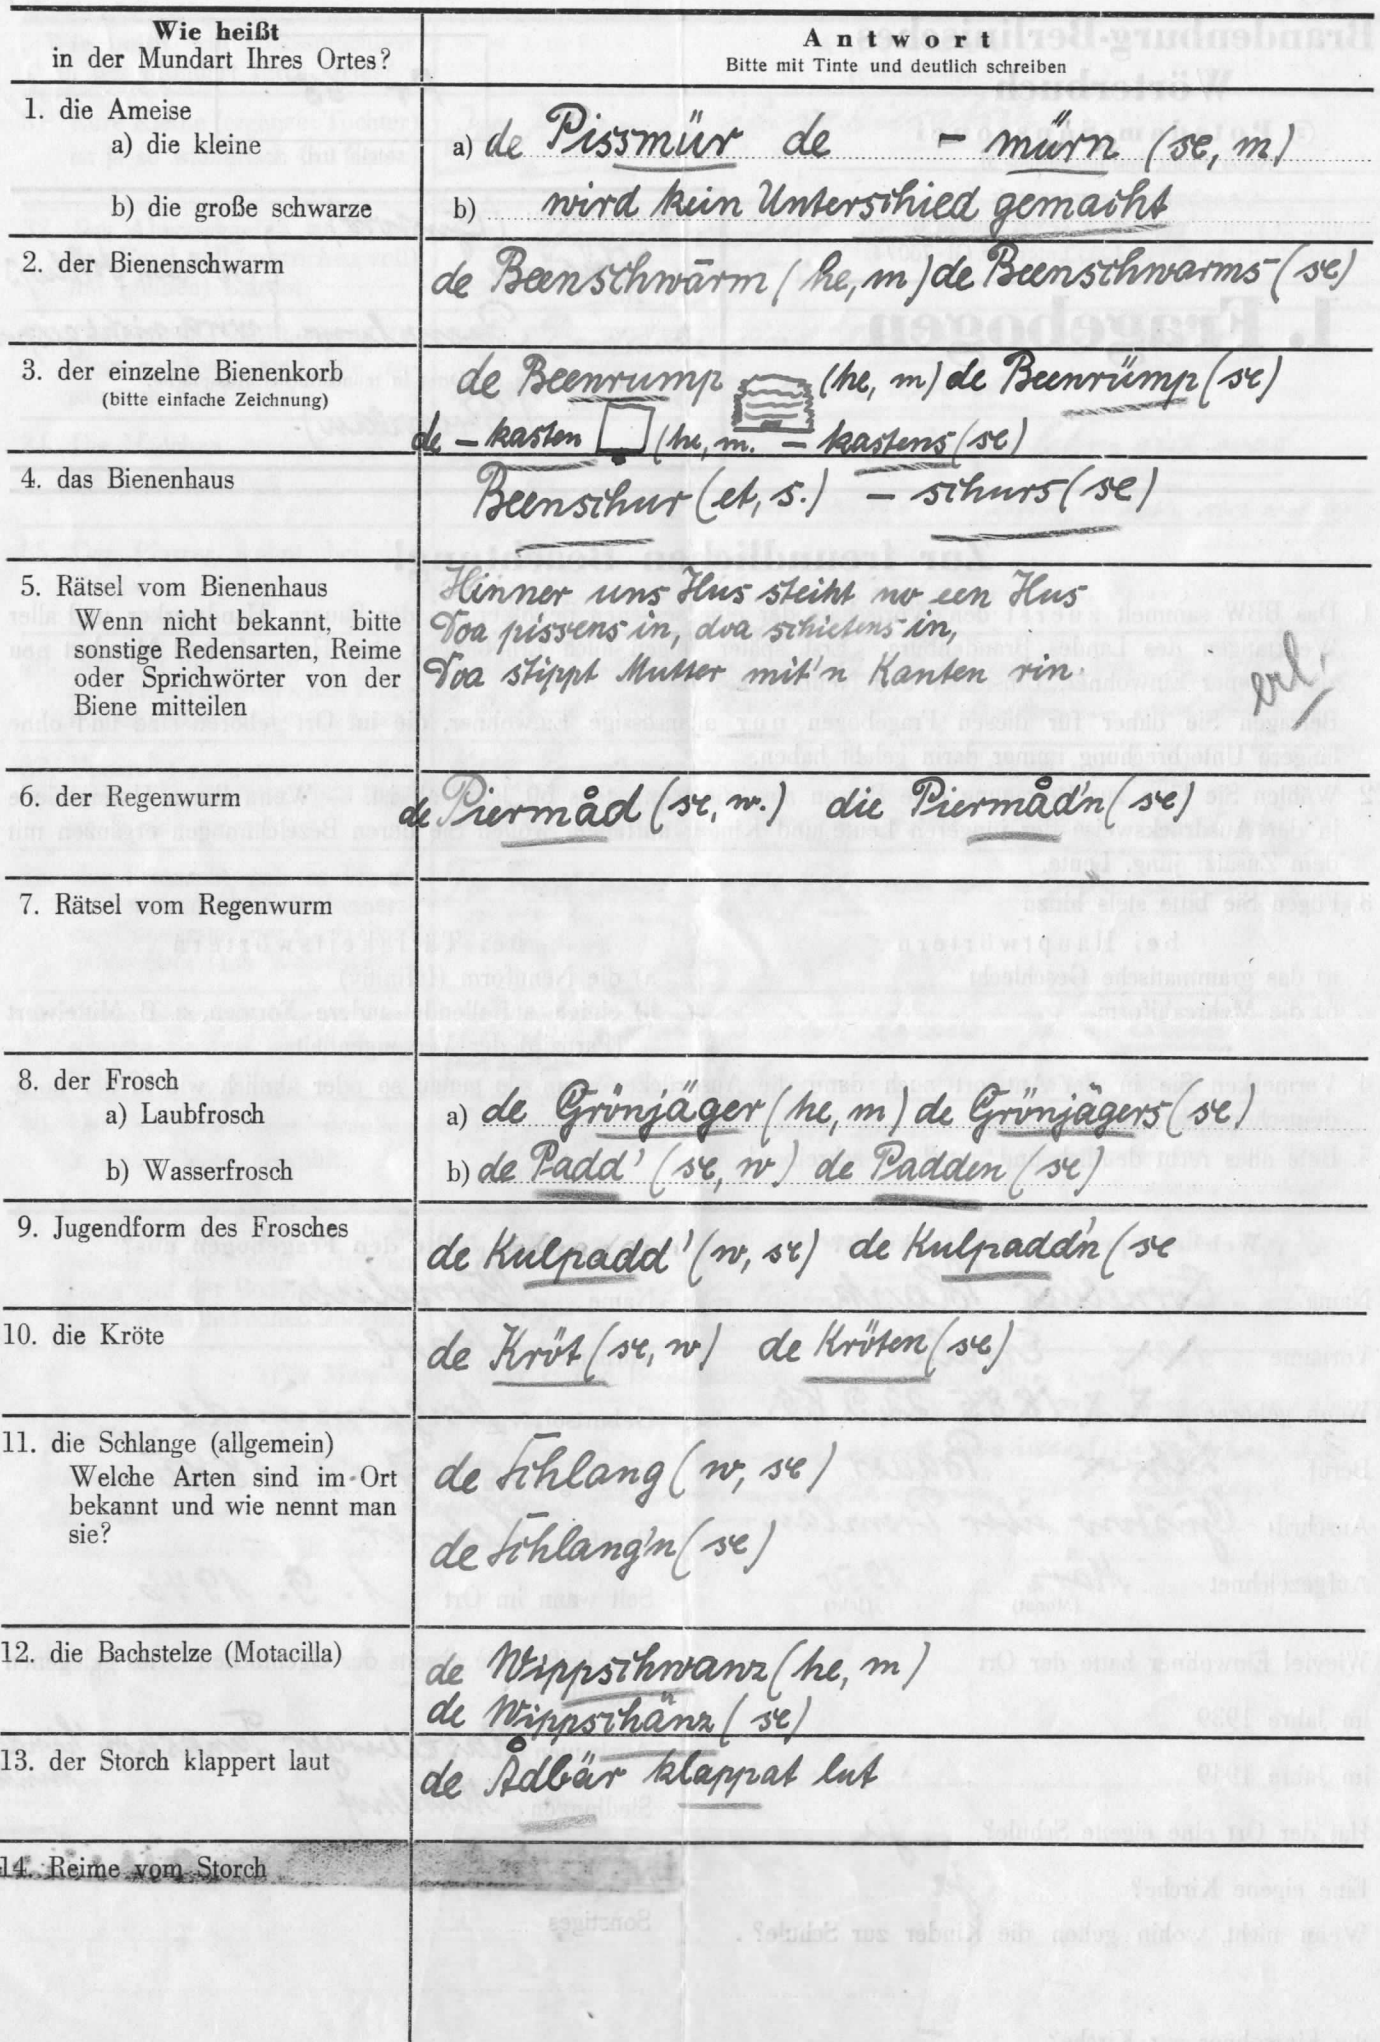 Wie heißt
in der Mundart Ihres Ortes?
Antwort
Bitte mit Tinte und deutlich schreiben
1. die Ameise
a) die kleine
a) de Pissmür de - mürn (se, m)
b) die große schwarze
b) wird kein Unterschied gemacht
2. der Bienenschwarm
de Beenschwärm (he, m) de Beenschwarms (se)
3. der einzelne Bienenkorb
(bitte einfache Zeichnung)
de Beenrump (he, m) de Beenrümp (se)
de - kasten (he, m. - kastens (se)
4. das Bienenhaus
Beenschur (et, s.) - schurs (se)
5. Rätsel vom Bienenhaus
Wenn nicht bekannt, bitte
sonstige Redensarten, Reime
oder Sprichwörter von der
Biene mitteilen
Hinner uns Hus steiht no een Hus
Doa pissens in, doa schietens in,
Doa stippt Mutter mit'n Kanten rin.
erl.
6. der Regenwurm
de Piermåd (se, w.) die Piermåd'n (se)
7. Rätsel vom Regenwurm
8. der Frosch
a) Laubfrosch
a) de Grönjäger (he, m) de Grönjägers (se)
b) Wasserfrosch
b) de Padd' (se, w) de Padden (se)
9. Jugendform des Frosches
de Kulpadd' (w, se) de Kulpadd'n (se
10. die Kröte
de Kröt (se, w) de Kröten (se)
11. die Schlange (allgemein)
Welche Arten sind im Ort
bekannt und wie nennt man
sie?
de Schlang (w, se)
de Schlang'n (se)
12. die Bachstelze (Motacilla)
de Wippschwanz (he, m)
de Wippschänz (se)
13. der Storch klappert laut
de Ådbär klappat lut
14. Reime vom Storch